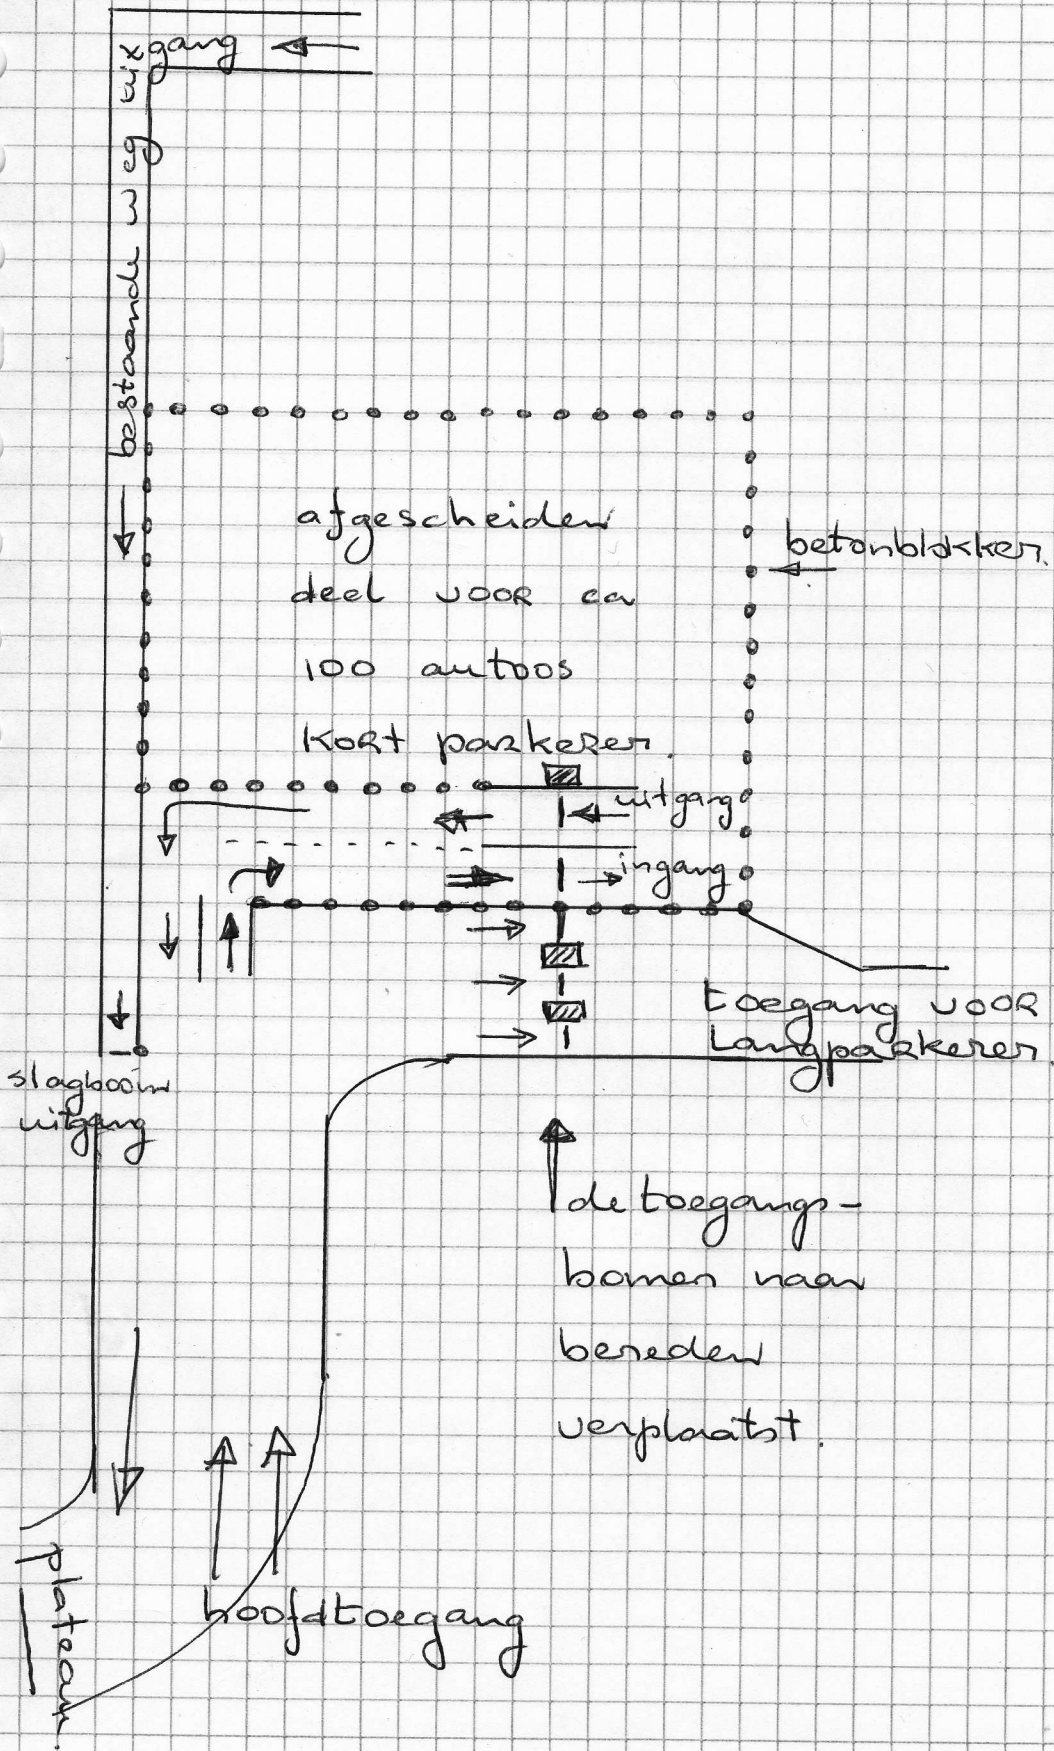 bestaande weg uitgang
afgescheiden
deel voor ca
100 autoos
kort parkeren.
betonblokken.
uitgang
ingang
toegang voor
langparkeren.
slagboom
uitgang
de toegangs-
bomen naar
beneden
verplaatst.
hoofdtoegang
plateau.